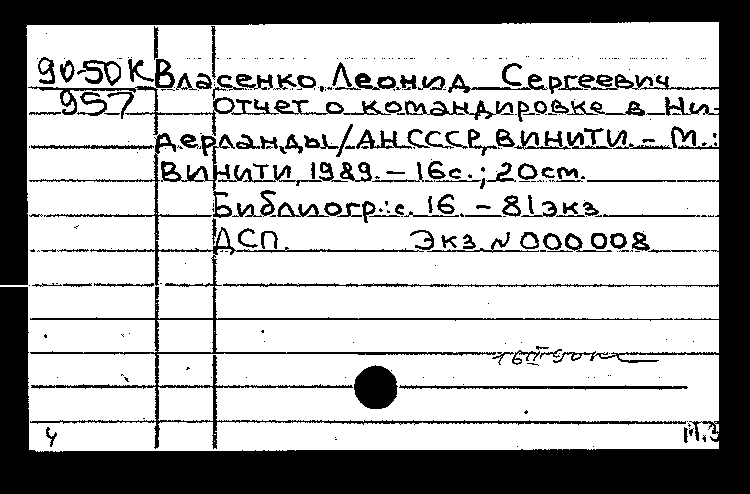 90-50К Власенко, Леонид Сергеевич
957 Отчет о командировке в Ни-
дерланды/АН СССР, ВИНИТИ. – М.:
ВИНИТИ, 1989. – 16с.; 20см.
Библиогр.: с. 16. – 81экз.
ДСП. Экз. N 000008
ч М.З